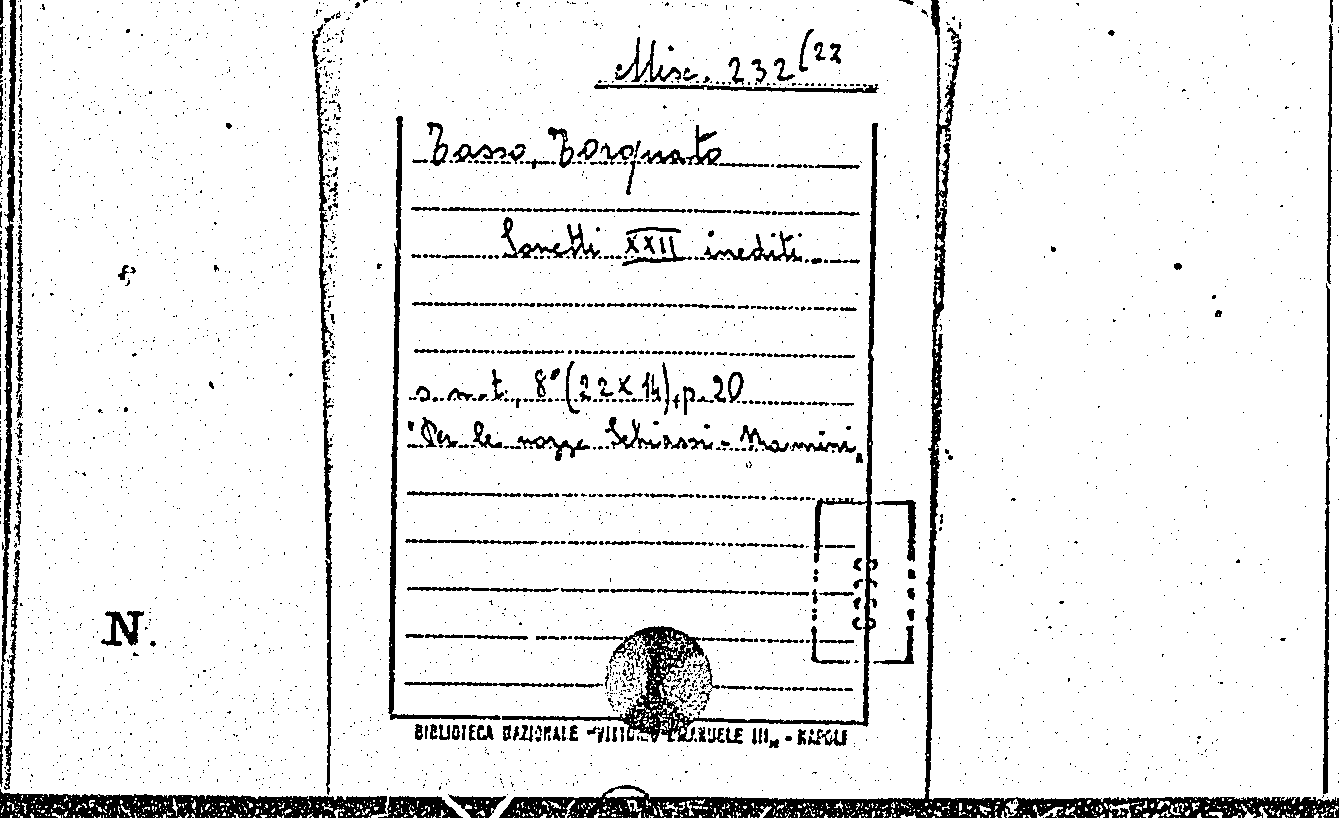 Misc. 232(22
Tasso, Torquato
Sonetti XXII inediti.
s.n.t., 8° (22 x 14), p. 20
"Per le nozze Schiassi-Mamini„
N.
BIBLIOTECA NAZIONALE "VITTORIO EMANUELE III„ - NAPOLI